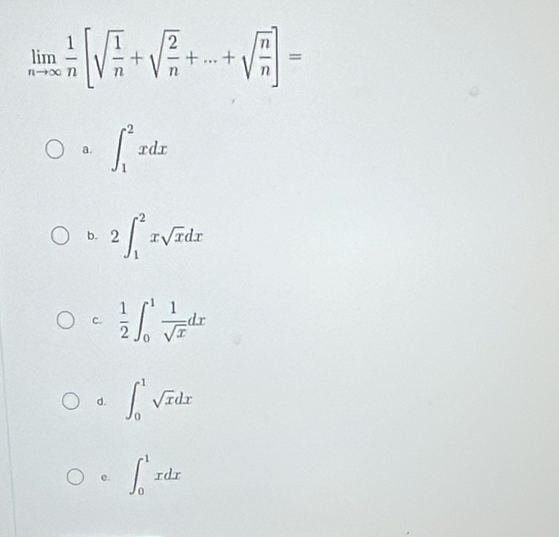 lim_{n→∞} 1/n [√(1/n) + √(2/n) + ... + √(n/n)] =
a. ∫_1^2 xdx
b. 2∫_1^2 x√xdx
c. 1/2 ∫_0^1 1/√x dx
d. ∫_0^1 √xdx
e. ∫_0^1 xdx